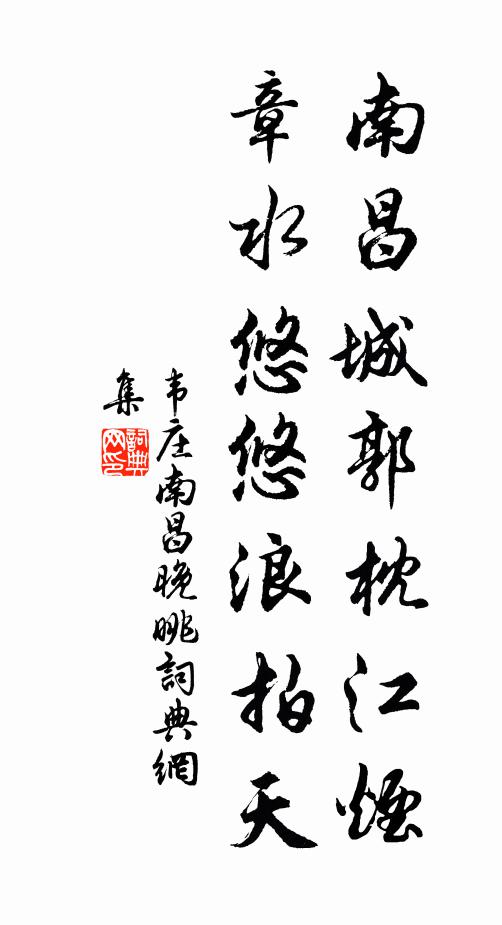 南昌城郭枕江煙
章水悠悠浪拍天
韦庄南昌晚眺詞典網
集
詞典网印